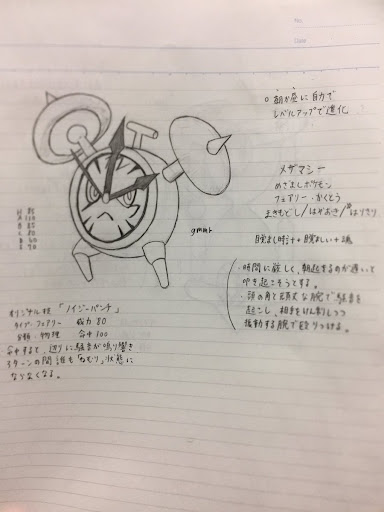 ○ 朝か昼に自力で
レベルアップで進化
メザマシー
めざましポケモン
フェアリー・かくとう
まきもどし/はやおき/※はりきり
目覚まし時計+目覚ましい+魂
・時間に厳しく、朝起きるのが遅いと
叩き起こそうとする。
・頭の角と頑丈な腕で騒音を
起こし、相手をけん制しつつ
振動する腕で殴りつける。
gmmt
H 85
A 110
B 85
C 80
D 60
S 90
オリジナル技 「ノイジーパンチ」
タイプ:フェアリー 威力 80
分類:物理 命中 100
命中すると、辺りに騒音が鳴り響き
3ターンの間誰も「ねむり」状態に
ならなくなる。